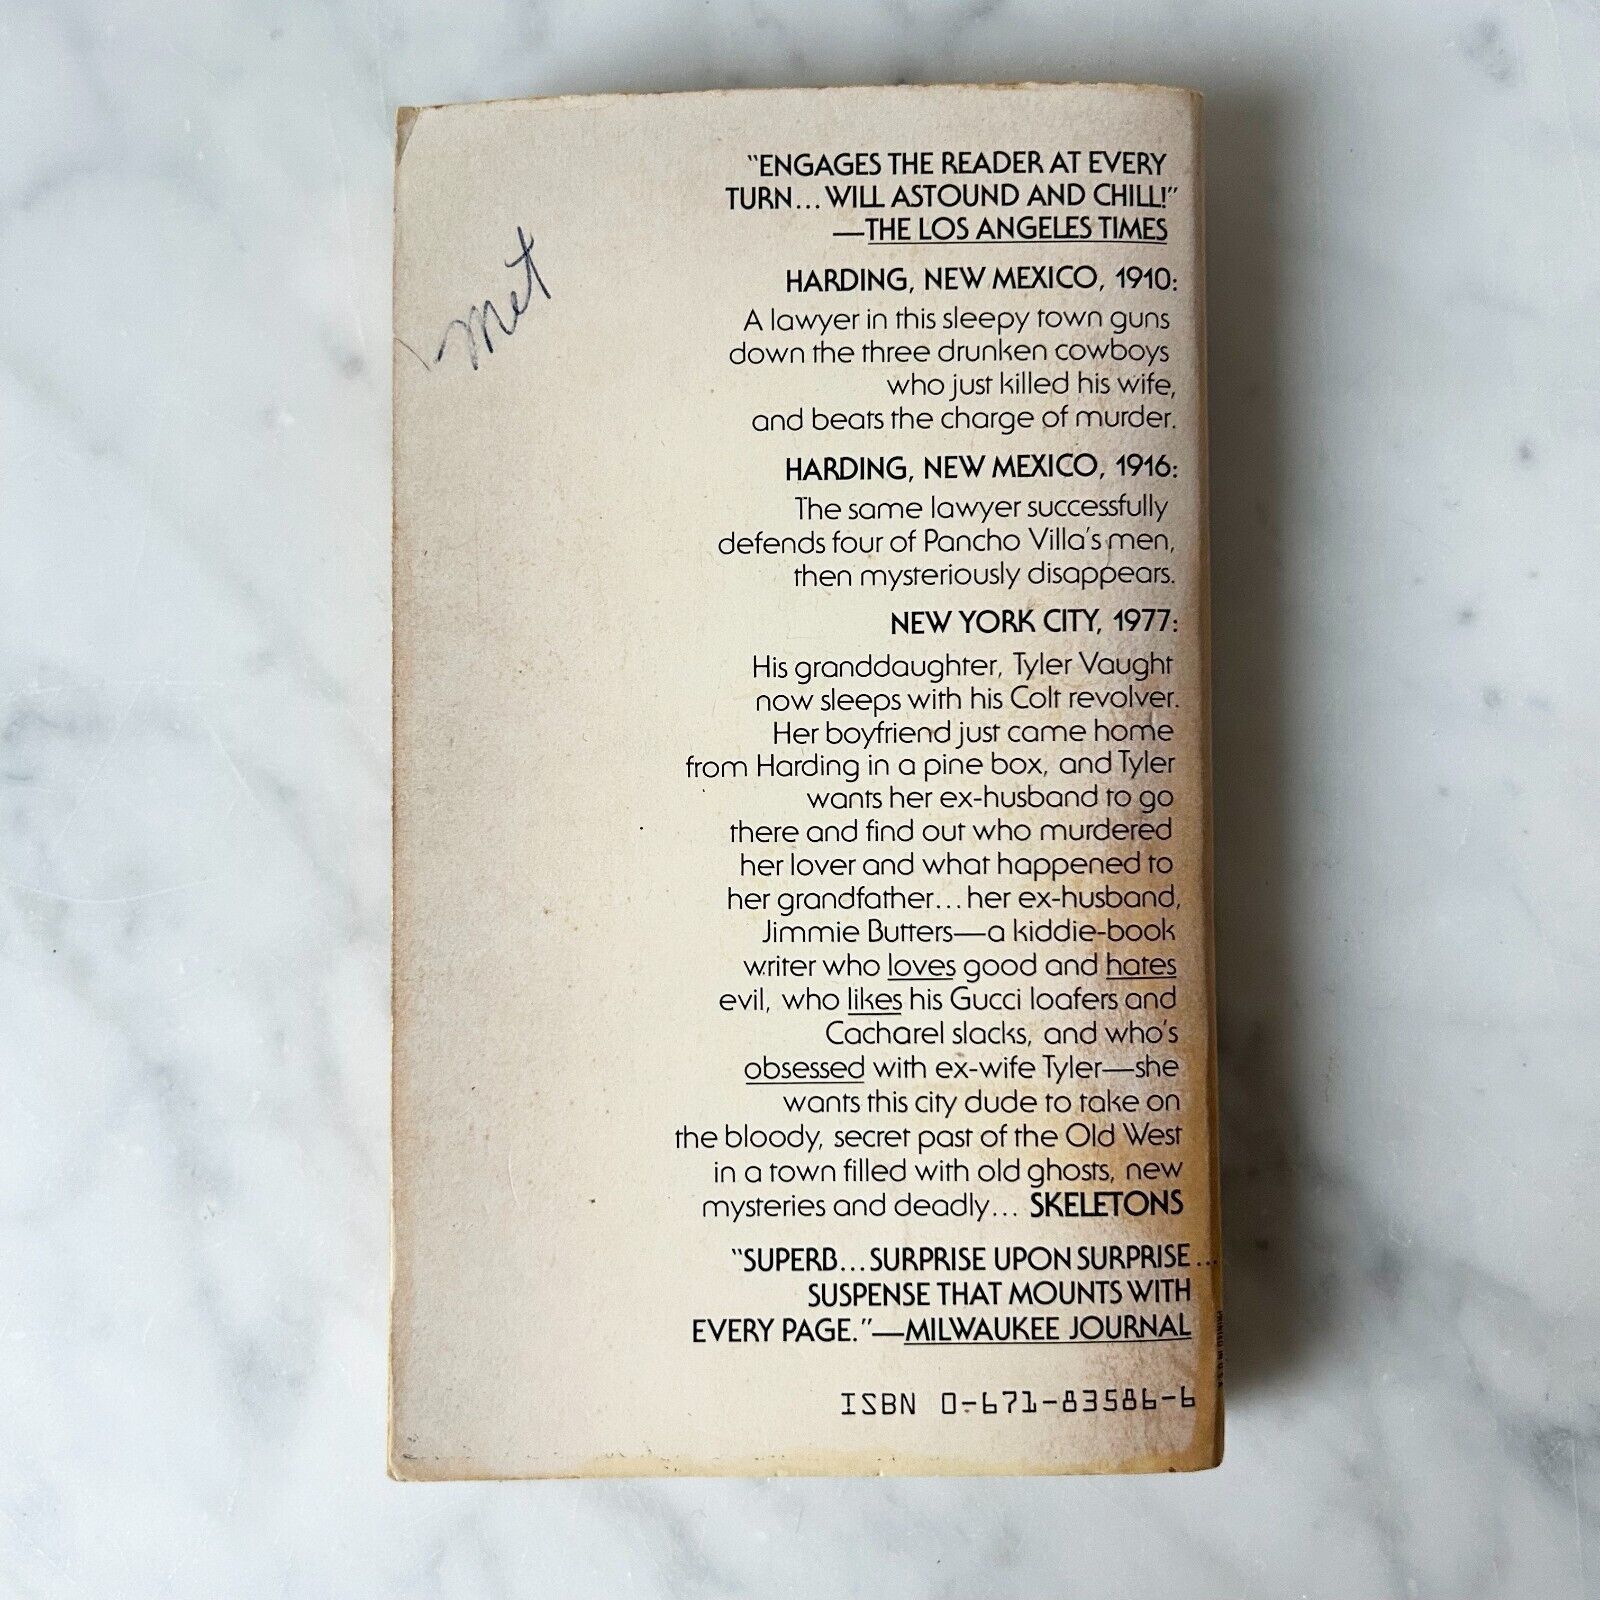 "ENGAGES THE READER AT EVERY
TURN... WILL ASTOUND AND CHILL!"
—THE LOS ANGELES TIMES
met
HARDING, NEW MEXICO, 1910:
A lawyer in this sleepy town guns
down the three drunken cowboys
who just killed his wife,
and beats the charge of murder.
HARDING, NEW MEXICO, 1916:
The same lawyer successfully
defends four of Pancho Villa's men,
then mysteriously disappears.
NEW YORK CITY, 1977:
His granddaughter, Tyler Vaught
now sleeps with his Colt revolver.
Her boyfriend just came home
from Harding in a pine box, and Tyler
wants her ex-husband to go
there and find out who murdered
her lover and what happened to
her grandfather... her ex-husband,
Jimmie Butters—a kiddie-book
writer who loves good and hates
evil, who likes his Gucci loafers and
Cacharel slacks, and who's
obsessed with ex-wife Tyler—she
wants this city dude to take on
the bloody, secret past of the Old West
in a town filled with old ghosts, new
mysteries and deadly... SKELETONS
"SUPERB... SURPRISE UPON SURPRISE...
SUSPENSE THAT MOUNTS WITH
EVERY PAGE."—MILWAUKEE JOURNAL
PRINTED IN U.S.A.
ISBN 0-671-83586-6